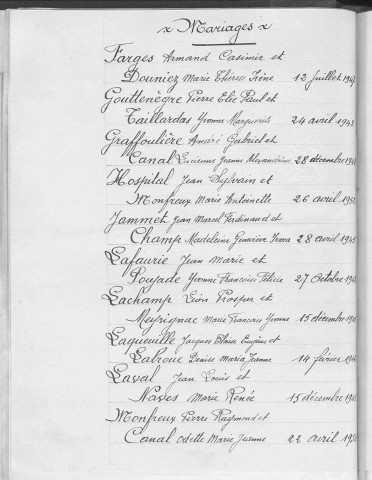 Mariages
Farges Armand Casimir et
Douniez Marie Thérèse Irène 12 juillet
Gouttenègre Pierre Elie Paul et
Taillardas Yvonne Marguerite 24 avril
Graffoulière André Gabriel et
Canal Lucienne Jeanne Alexandrine 28 décembre
Hospital Jean Sylvain et
Monfreux Marie Antoinette 26 avril
Jammet Jean Marcel Ferdinand et
Champ Madeleine Geneviève Irma 28 avril 1945
Lafaurie Jean Marie et
Poujade Yvonne Françoise Félicie 27 octobre
Lachamp Léon Prosper et
Meyrignac Marie Françoise Yvonne 15 décembre
Laqueuille Jacques Eugène et
Denise Maria Jeanne 14 février
Laval Jean Louis et
Naves Marie Renée 15 décembre
Monfreux Pierre Raymond et
Canal Odette Marie Jeanne 22 avril